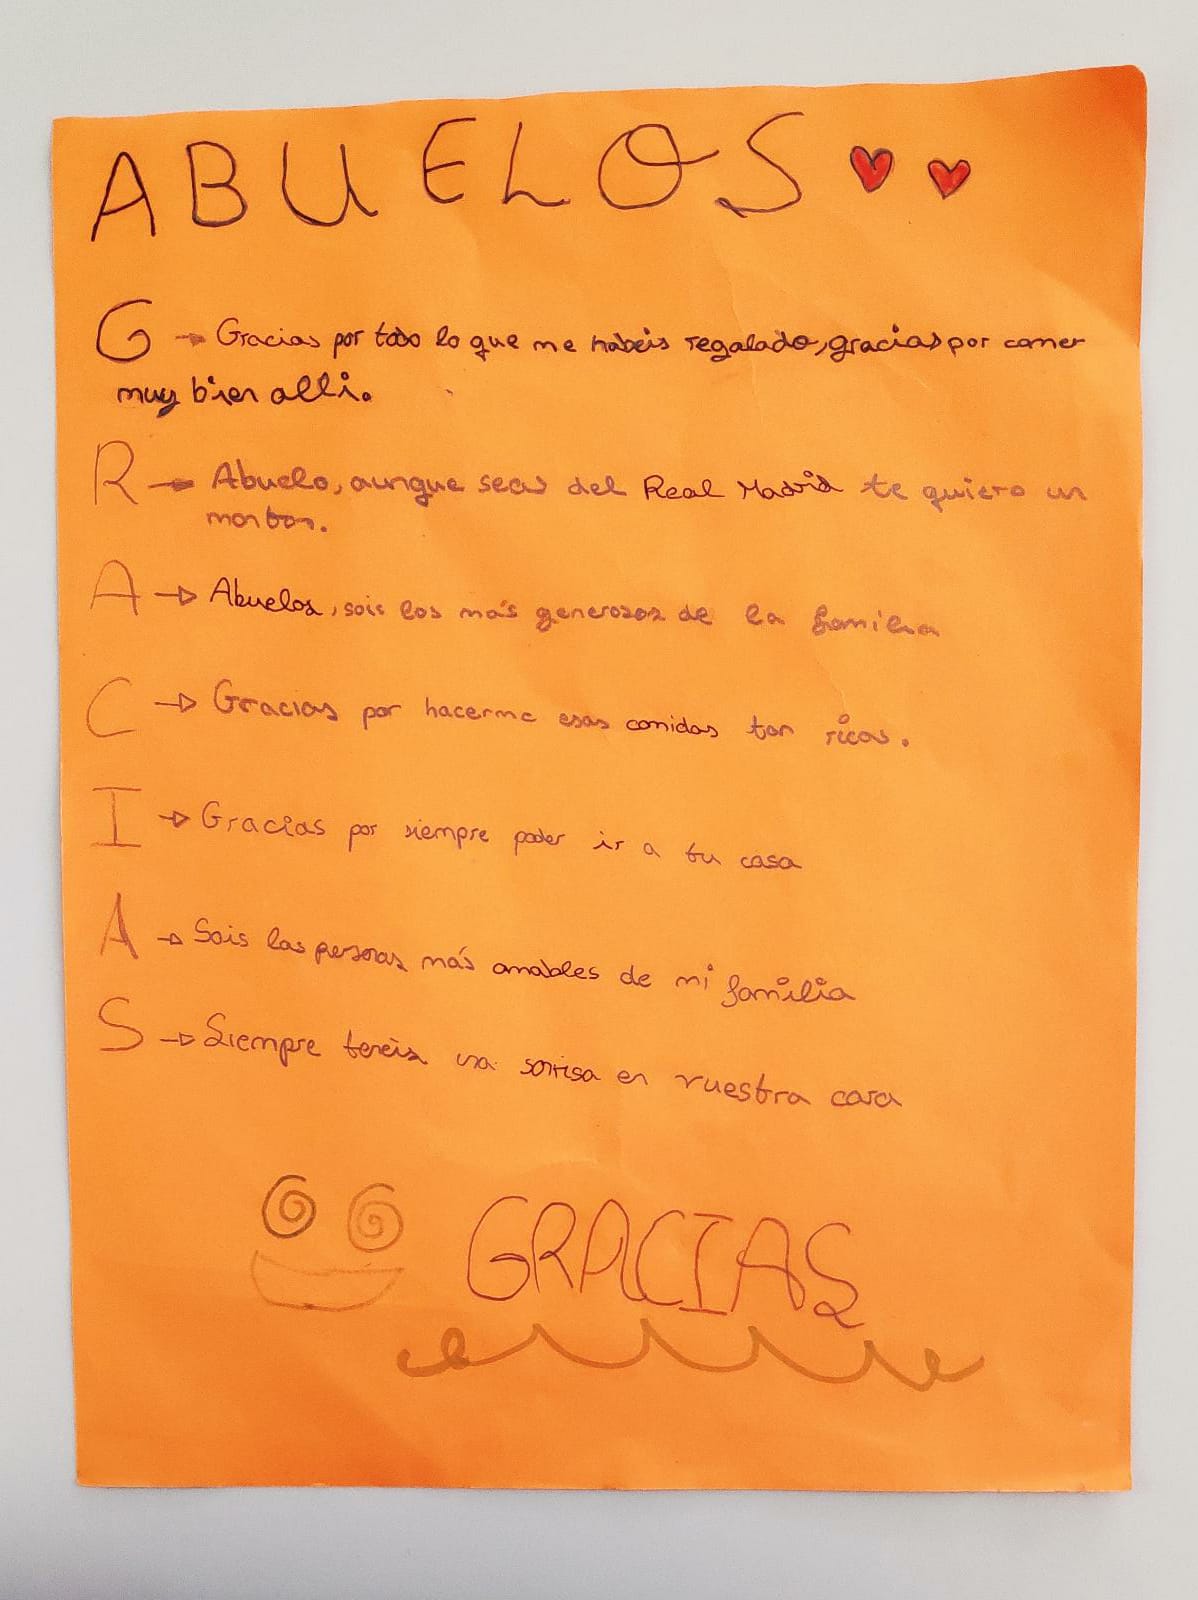 ABUELOS
G → Gracias por todo lo que me habeis regalado, gracias por comer
muy bien alli.
R → Abuelo, aunque seas del Real Madrid te quiero un
monton.
A → Abuelos, sois los más generosos de la familia
C → Gracias por hacerme esas comidas tan ricas.
I → Gracias por siempre poder ir a tu casa
A → Sois las personas más amables de mi familia
S → Siempre teneis una sonrisa en vuestra cara
GRACIAS